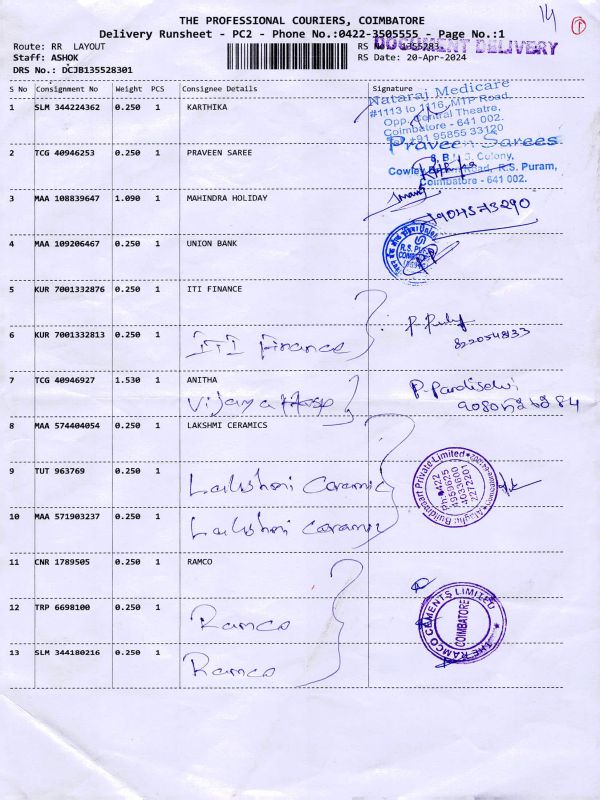 14
1
THE PROFESSIONAL COURIERS, COIMBATORE
Delivery Runsheet - PC2 - Phone No.:0422-3505555 - Page No.:1
Route: RR LAYOUT RS No 1355283
DOCUMENT DELIVERY
Staff: ASHOK RS Date: 20-Apr-2024
DRS No.: DCJB135528301
S No Consignment No Weight PCS Consignee Details Signature
1 SLM 344224362 0.250 1 KARTHIKA
Nataraj Medicare
#1113 to 1116, MTP Road,
Opp. Central Theatre,
Coimbatore - 641 002.
+91 95855 33120
2 TCG 40946253 0.250 1 PRAVEEN SAREE
Praveen Sarees
Colony,
Cowley Road, R.S. Puram,
Coimbatore - 641 002.
3 MAA 108839647 1.090 1 MAHINDRA HOLIDAY
7904573290
4 MAA 109206467 0.250 1 UNION BANK
5 KUR 7001332876 0.250 1 ITI FINANCE
6 KUR 7001332813 0.250 1 ITI Finance
7 TCG 40946927 1.530 1 ANITHA
Vijaya Hosp
8 MAA 574404054 0.250 1 LAKSHMI CERAMICS
9 TUT 963769 0.250 1 Lakshmi Ceramic
Private Limited
Ph: 0422
10 MAA 571903237 0.250 1 Lakshmi Ceramic
11 CNR 1789505 0.250 1 RAMCO
12 TRP 6698100 0.250 1 Ramco
THE RAMCO CEMENTS LIMITED
COIMBATORE
13 SLM 344180216 0.250 1 Ramco